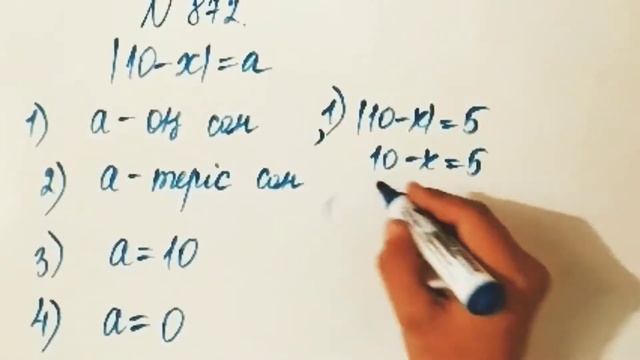 N 872.
|10-x|=a
1) a - оң сан
2) a - теріс сан
3) a=10
4) a=0
1) |10-x|=5
10-x=5